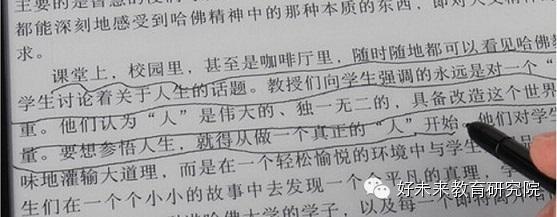 主要的是智慧的
都能深刻地感受到哈佛精神中的那种本质的东西，即对人文精神
求。
课堂上，校园里，甚至是咖啡厅里，随时随地都可以看见哈佛
学生讨论着关于人生的话题。教授们向学生强调的永远是对一个“
重。他们认为“人”是伟大的、独一无二的，具备改造这个世界
量。要想参悟人生，就得从做一个真正的“人”开始。他们对学
味地灌输大道理，而是在一个轻松愉悦的环境中与学生
生们在一个个小小的故事中去发现一个个平凡的真理，学
哈佛大学的学子，以及每一个
好未来教育研究院